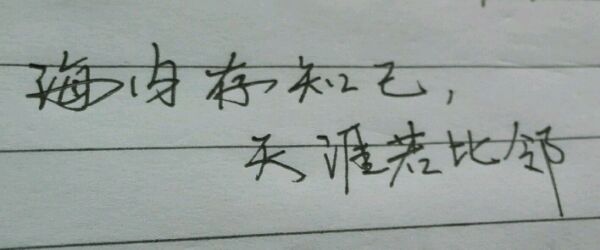 海内存知己,
天涯若比邻